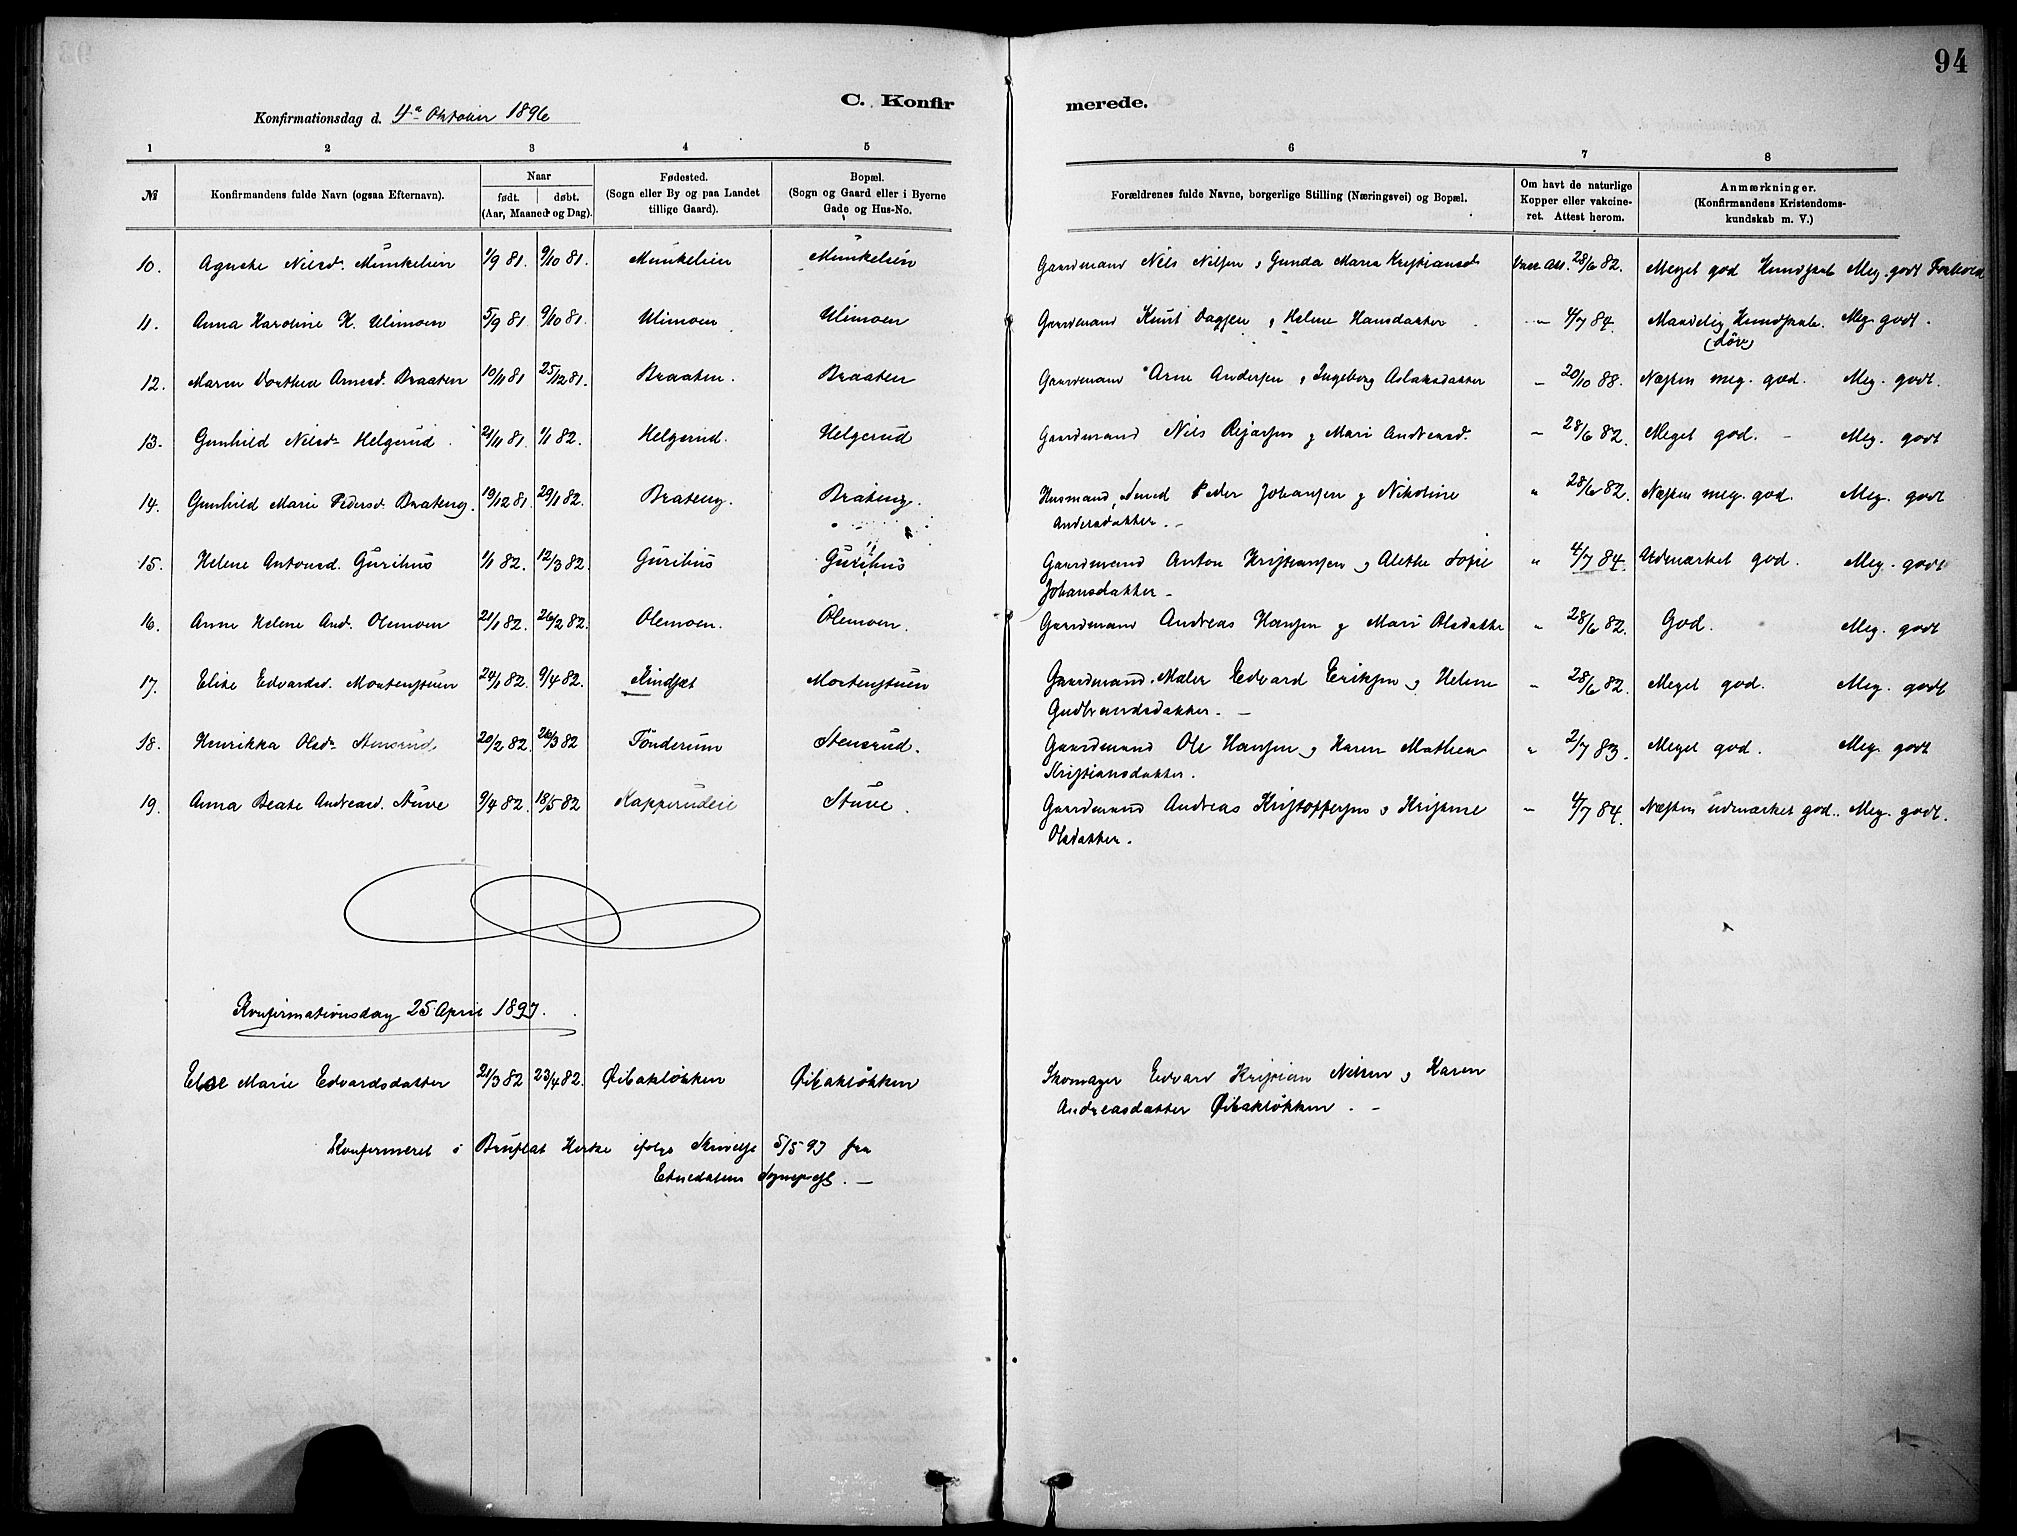 94
C. Konfir
merede.
Konfirmationsdag d. 4de Oktober 1896
1 2 3 4 5 6 7 8
№ Konfirmandens fulde Navn (ogsaa Efternavn). Naar født. døbt. (Aar, Maaned og Dag). Fødested. (Sogn eller By og paa Landet tillige Gaard). Bopæl. (Sogn og Gaard eller i Byerne Gade og Hus-No. Forældrenes fulde Navne, borgerlige Stilling (Næringsvei) og Bopæl. Om havt de naturlige Kopper eller vakcineret. Attest herom. Anmærkninger. (Konfirmandens Kristendomskundskab m. V.)
10. Agnethe Nilsd. Munkelien 1/9 81. 9/10 81. Munkelien Munkelien Gaardmand Nils Nilsen & Gunda Maria Kristiansd. Vacc. Att. 28/6 82. Meget god Kundskab Meg. godt Forhold
11. Anna Karoline K. Ulimoen 5/9 81 9/10 81. Ulimoen Ulimoen Gaardmand Knut Dagsen & Helene Hansdatter " 4/7 84. Maadelig Kundskab. Meg. godt.
(døv)
12. Maren Dorthea Arnesd. Braaten 10/11 81 25/12 81. Braaten. Braaten Gaardmand Arne Andersen & Ingeborg Aslaksdatter " 20/10 88. Næsten meg. god. Meg. godt.
13. Gunhild Nilsd. Helgerud 21/11 81. 1/1 82. Helgerud. Helgerud Gaardmand Nils Rejarsen & Mari Andreasd. " 28/6 82. Meget god. - Meg. godt
14. Gunhild Marie Pedersd. Brateng. 19/12 81. 29/1 82. Brateng. Brateng. Husmand, Smed Peder Johansen & Nikoline " 28/6 82. Næsten meg. god. Meg. godt
Andersdatter. -
15. Helene Antonsd. Gurihus 1/1 82. 12/3 82. Gurihus Gurihus Gaardmand Anton Kristiansen & Alethe Sofie " 4/7 84. Udmærket god. Meg. godt
Johansdatter -
16. Anne Helene And. Olemoen 21/1 82. 26/2 82. Olemoen. Olemoen. Gaardmand Andreas Hansen & Mari Olsdatter " 28/6 82. God. Meg. godt
17. Elise Edvardsd. Mortenstuen 24/1 82. 9/4 82. Mortenstuen Gaardmand. Maler Edvard Eriksen & Helene " 28/6 82. Meget god. Meg. godt
Gudbrandsdatter. -
18. Henrikka Olsd. Stensrud 20/2 82. 26/3 82 Tønderum Stensrud. Gaardmand Ole Hansen & Karen Mathea " 2/7 83. Meget god. Meg. godt
Kristiansdatter.
19. Anna Beate Andreasd. Stuve 9/4 82. 18/5 82 Kapperudeie Stuve. Gaardmand Andreas Kristoffersen & Kristine " 4/7 84. Næsten udmærket god. Meg. godt.
Olsdatter.
Konfirmationsdag 25 April 1897.
Else Marie Edvardsdatter 21/3 82 23/4 82. Øibakløkken Øibakløkken Skomager Edvard Kristian Nilsen & Karen
Andreasdatter Øibakløkken. -
Konfirmeret i Bruflat Kirke ifølge Skrivelse 5/5 97 fra
Etnedalens Sognepræst. -